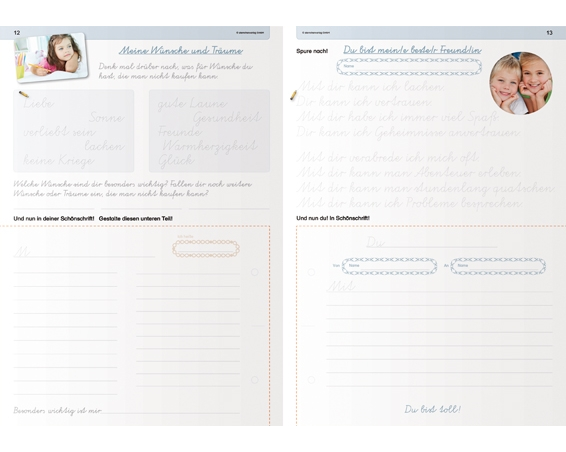 12
Meine Wünsche und Träume
Denk mal drüber nach, was für Wünsche du
hast, die man nicht kaufen kann.
Liebe
Sonne
verliebt sein
lachen
keine Kriege
gute Laune
Gesundheit
Freunde
Warmherzigkeit
Glück
Welche Wünsche sind dir besonders wichtig? Fallen dir noch weitere
Wünsche oder Träume ein, die man nicht kaufen kann?
Und nun in deiner Schönschrift! Gestalte diesen unteren Teil!
Besonders wichtig ist mir
13
Spure nach!
Du bist mein/e beste/r Freund/in
Name
Mit dir kann ich lachen
Dir kann ich vertrauen
Mit dir habe ich immer viel Spaß
Dir kann ich Geheimnisse anvertrauen
Mit dir verabrede ich mich oft
Mit dir kann man Abenteuer erleben
Mit dir kann man stundenlang quatschen
Mit dir kann ich Probleme besprechen
Und nun du! In Schönschrift!
Du
Von Name
An Name
Mit
Du bist toll!